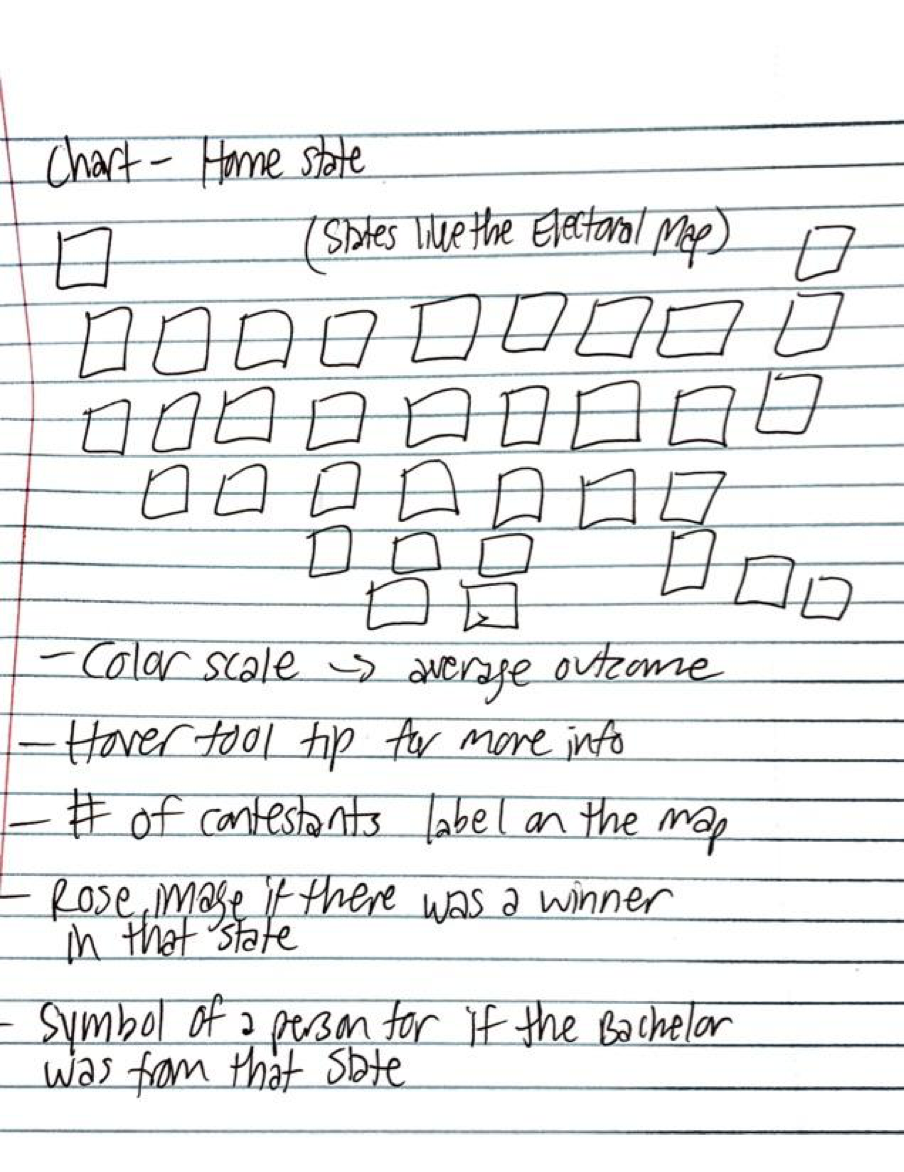 Chart - Home state
(States like the Electoral Map)
- Color scale → average outcome
- Hover tool tip for more info
- # of contestants label on the map
- Rose image if there was a winner
in that state
- Symbol of a person for if the Bachelor
was from that state